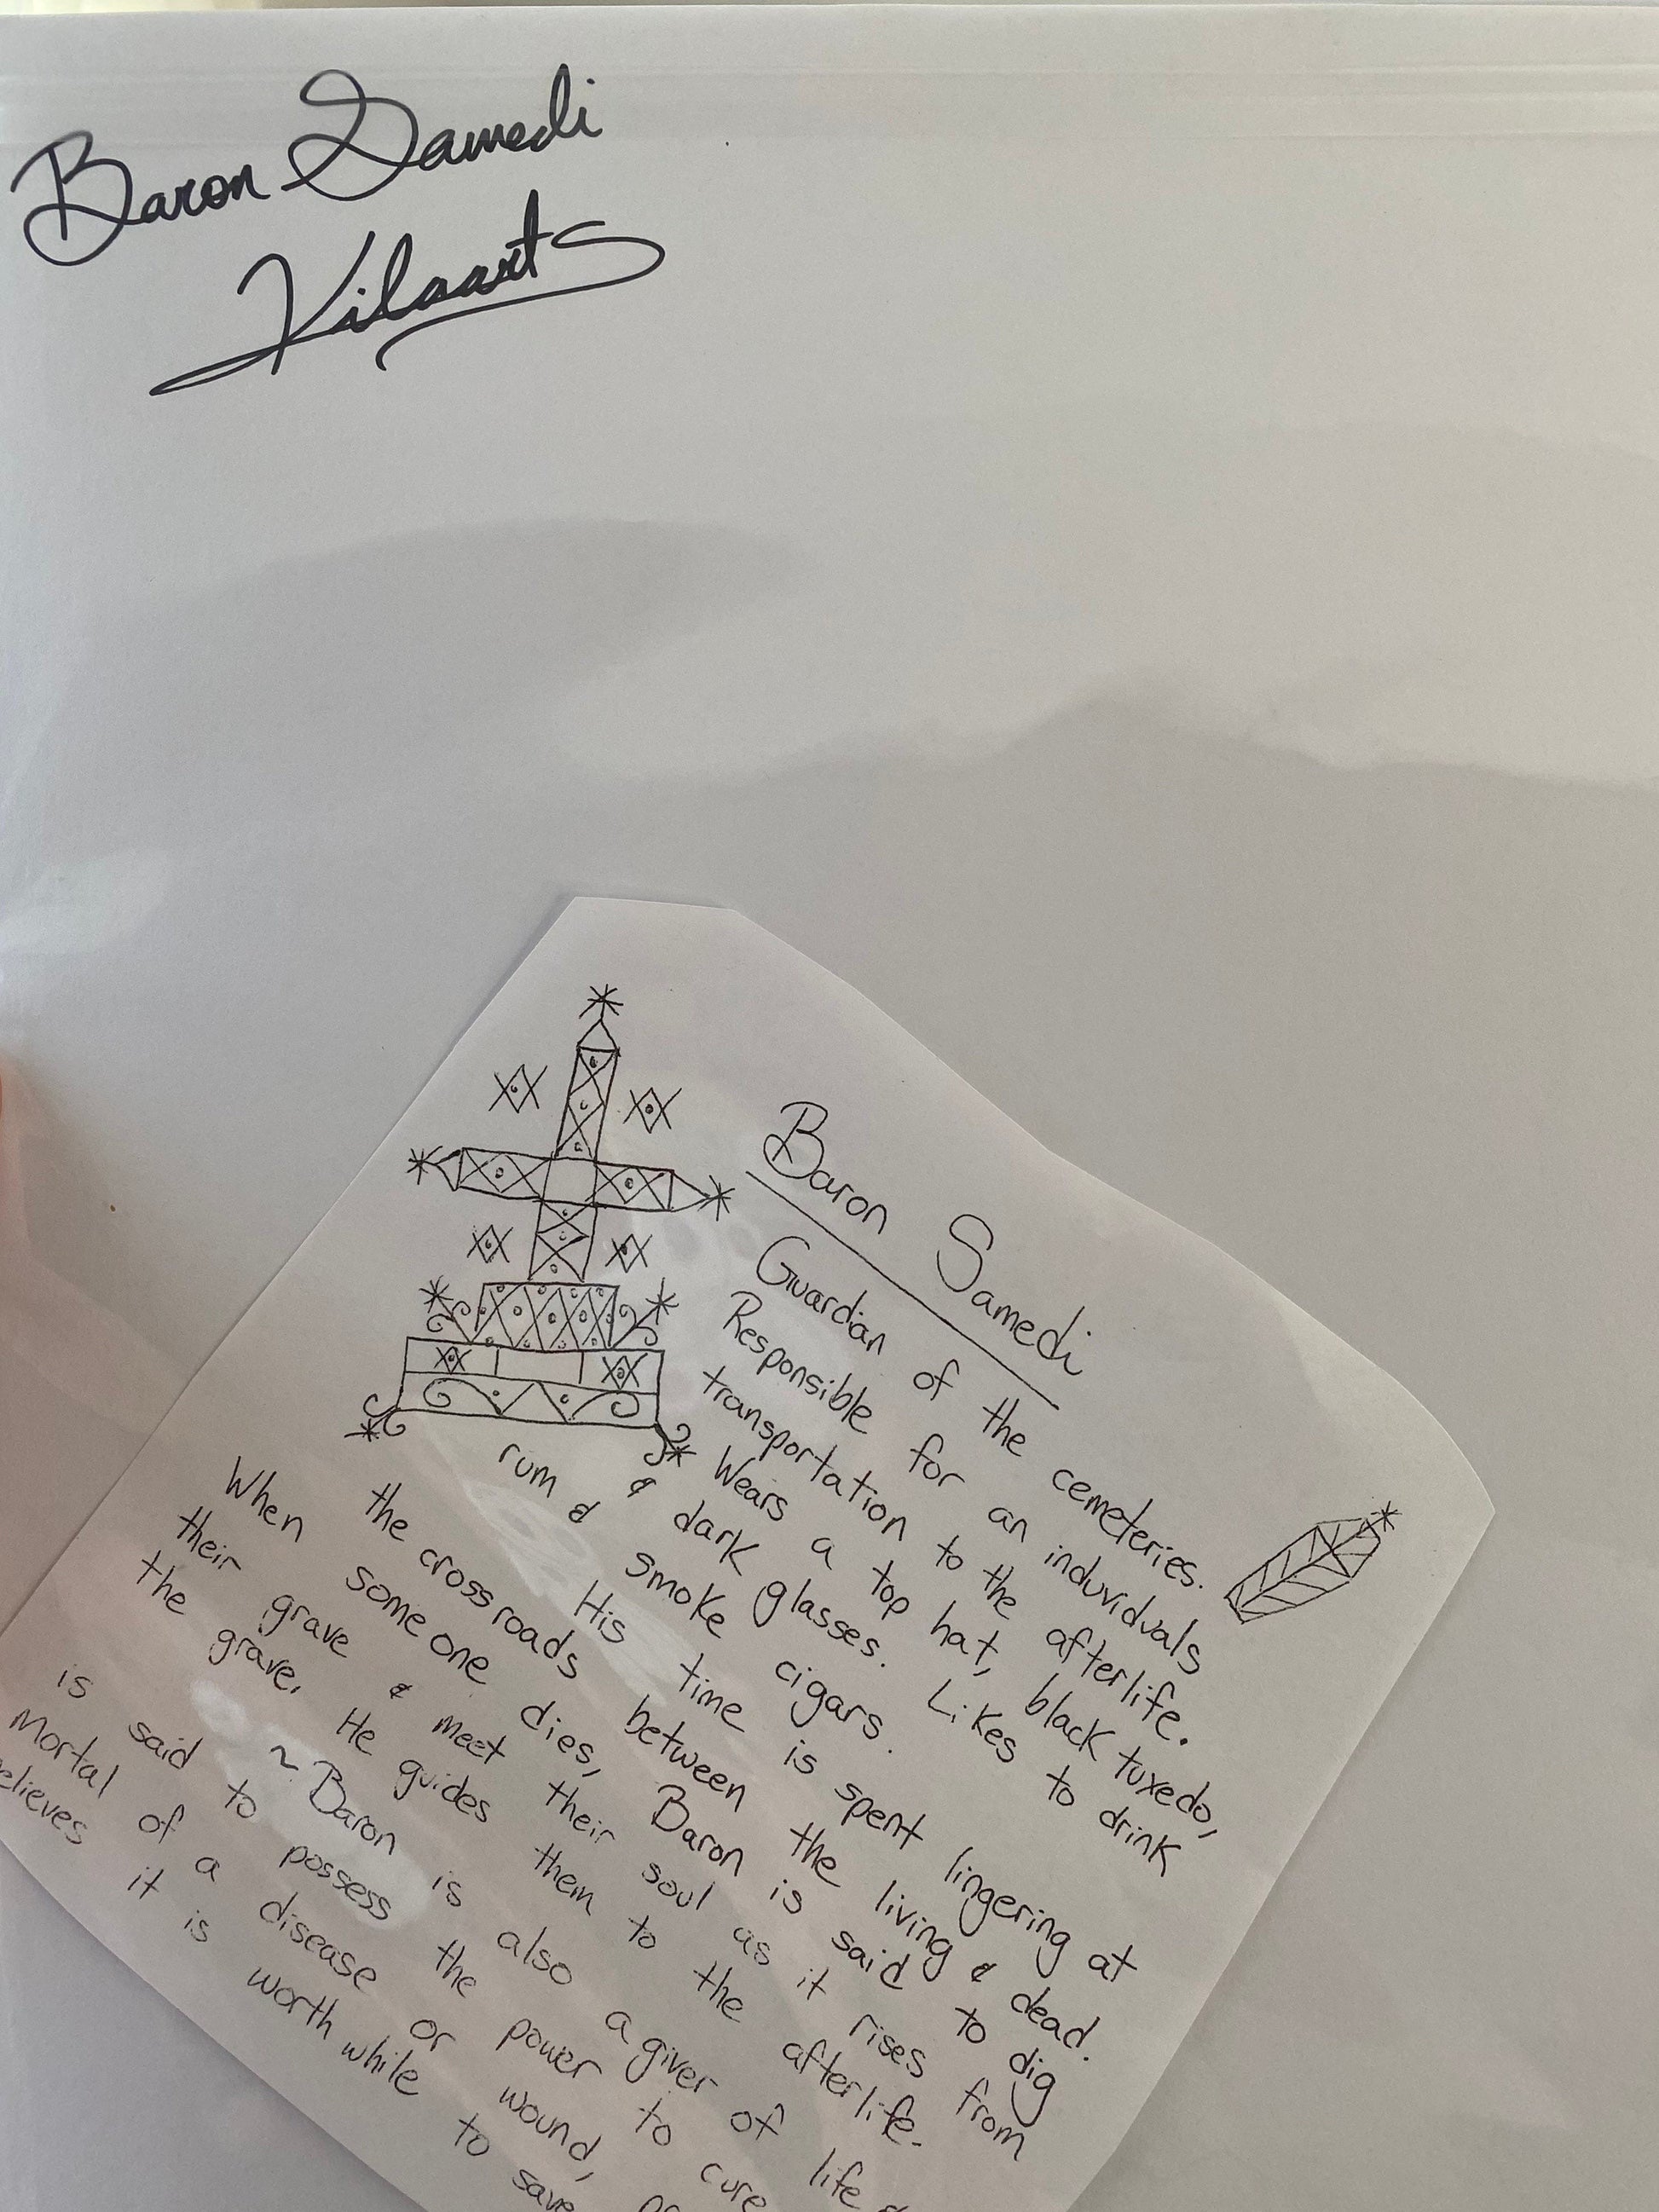 Baron Samedi
Kilaarts
Baron Samedi
Guardian of the cemeteries.
Responsible for an induviduals
transportation to the afterlife.
Wears a top hat, black tuxedo,
& dark glasses. Likes to drink
rum & smoke cigars.
His time is spent lingering at
the crossroads between the living & dead.
When someone dies, Baron is said to dig
their grave & meet their soul as it rises from
the grave. He guides them to the afterlife.
~Baron is also a giver of life
is said to possess the power to cure
Mortal of a disease or wound,
elieves it is worth while to save